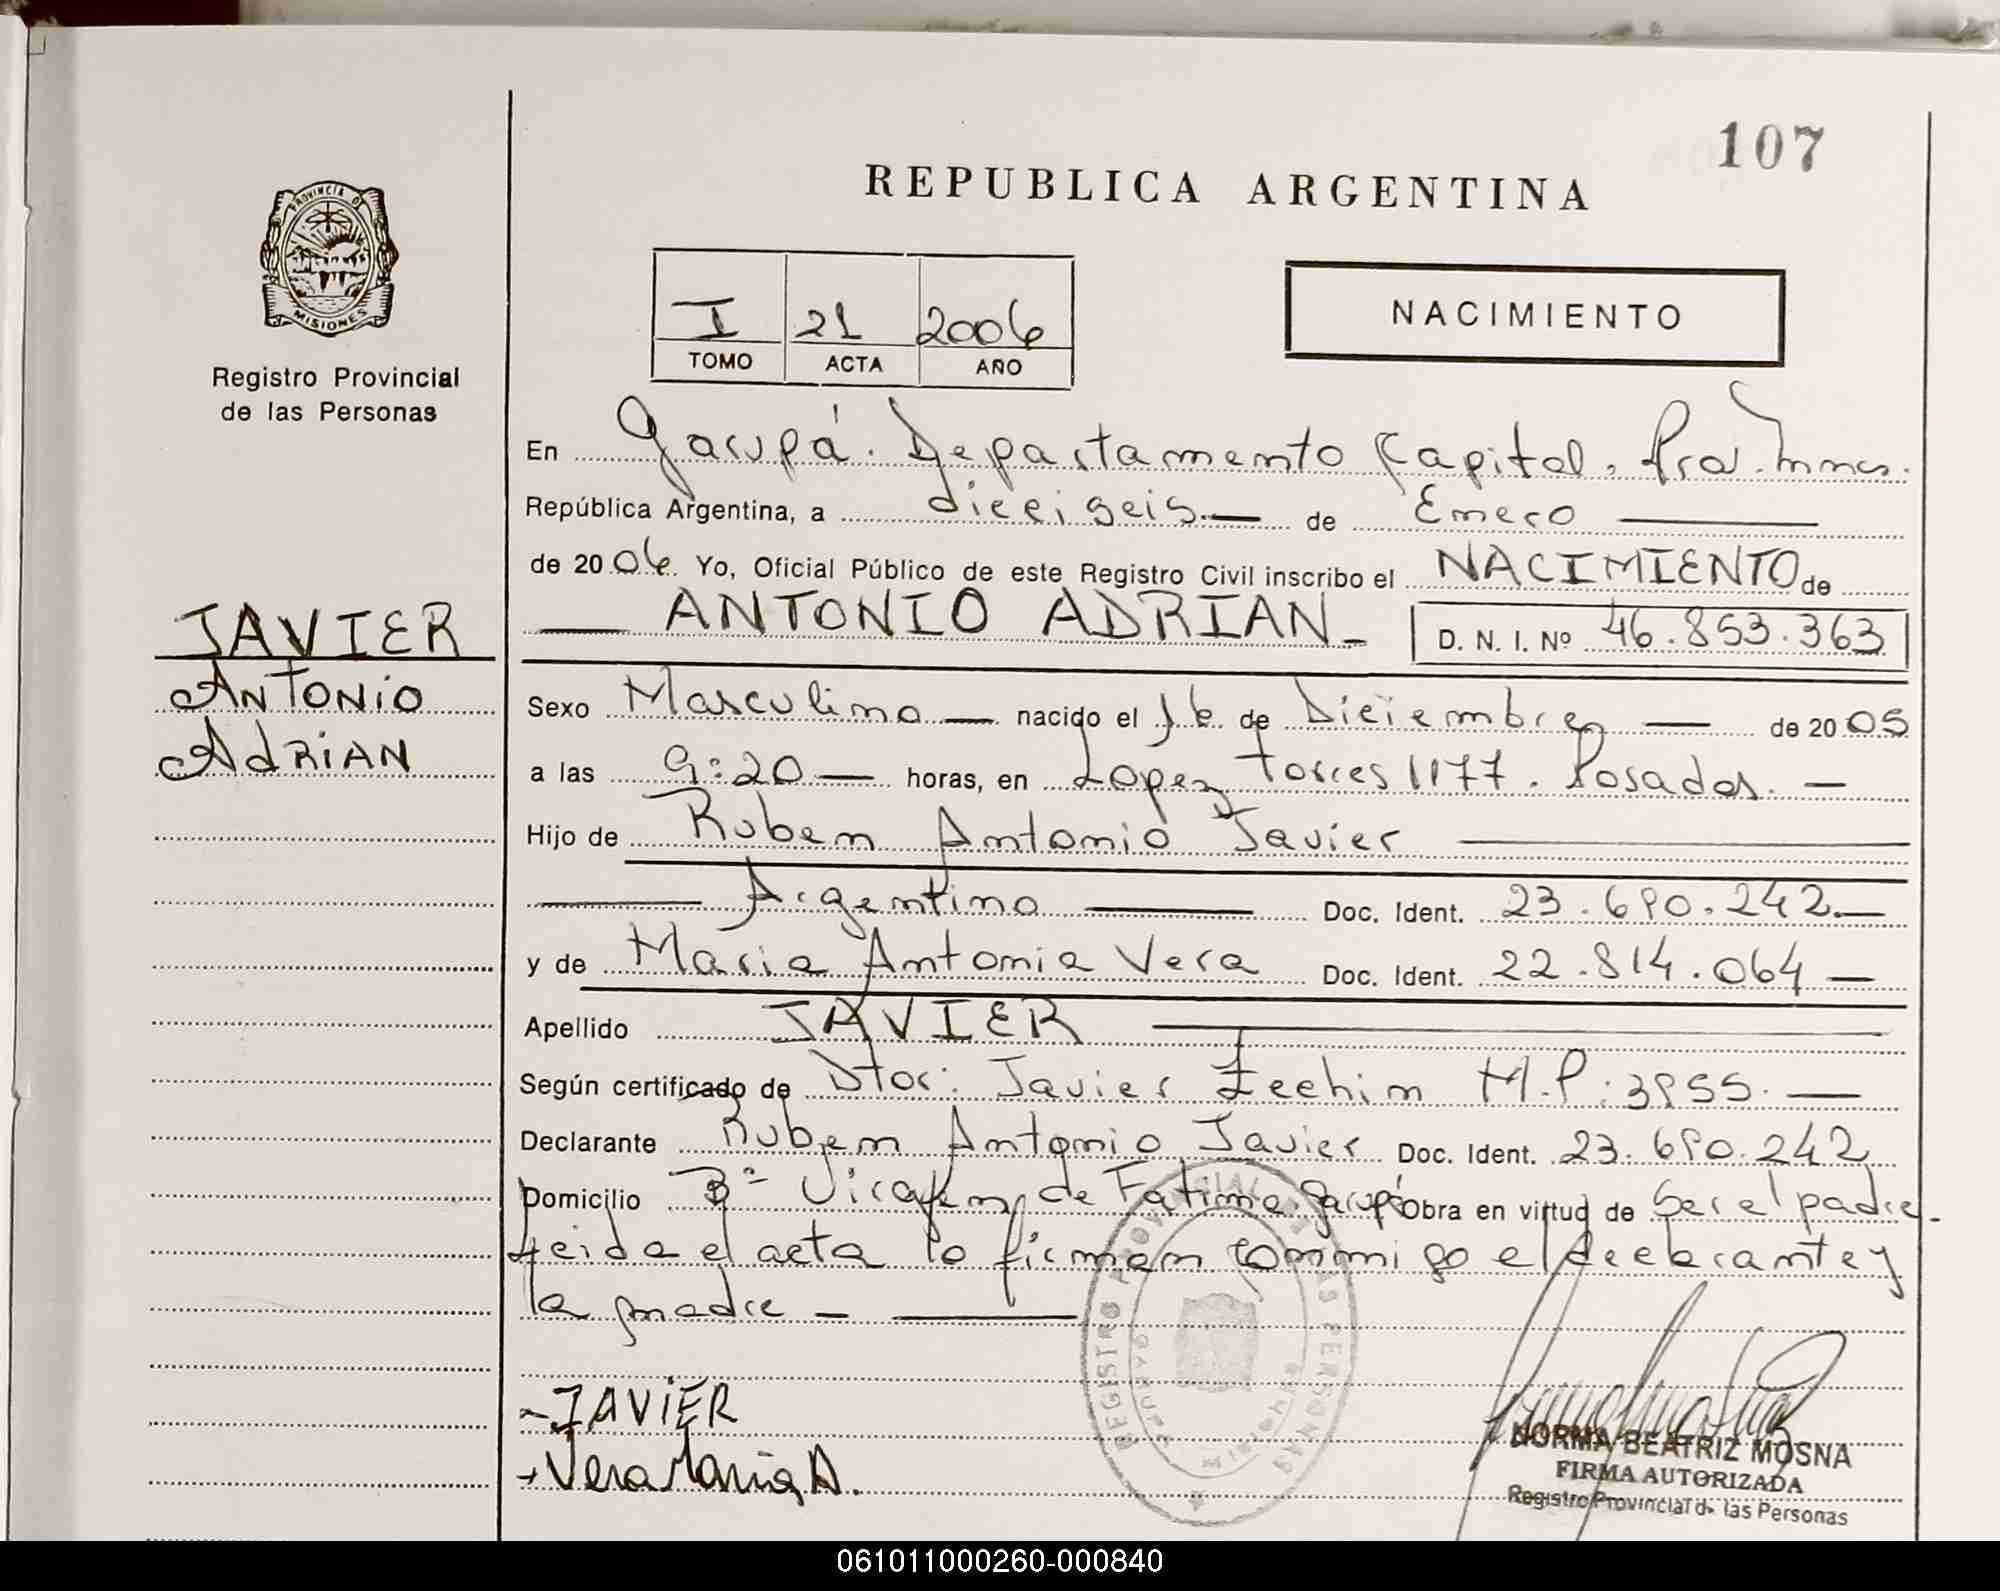 107
REPUBLICA ARGENTINA
PROVINCIA D
MISIONES
Registro Provincial
de las Personas
I 21 2006
TOMO ACTA AÑO
NACIMIENTO
En Garupá. Departamento Capital. Pcia. Mnes.
República Argentina, a dieciseis de Enero
de 2006. Yo, Oficial Público de este Registro Civil inscribo el NACIMIENTO de
ANTONIO ADRIAN D. N. I. Nº 46.853.363
JAVIER
ANTONIO
ADRIAN
Sexo Masculino nacido el 16 de Diciembre de 2005
a las 9:20 horas, en Lopez Torres 1177. Posadas.
Hijo de Ruben Antonio Javier
Argentino Doc. Ident. 23.690.242
y de Maria Antonia Vera Doc. Ident. 22.814.064
Apellido JAVIER
Según certificado de Dtor: Javier M.P: 3955.
Declarante Ruben Antonio Javier Doc. Ident. 23.690.242
Domicilio Bº Virgen de Fatima. Garupá Obra en virtud de Ser el padre.
Leida el acta lo firman conmigo el declarante y
la madre
REGISTRO PROVINCIAL DE LAS PERSONAS
GARUPA
Misiones
JAVIER
Vera Maria A.
NORMA BEATRIZ MOSNA
FIRMA AUTORIZADA
Registro Provincial d. las Personas
061011000260-000840